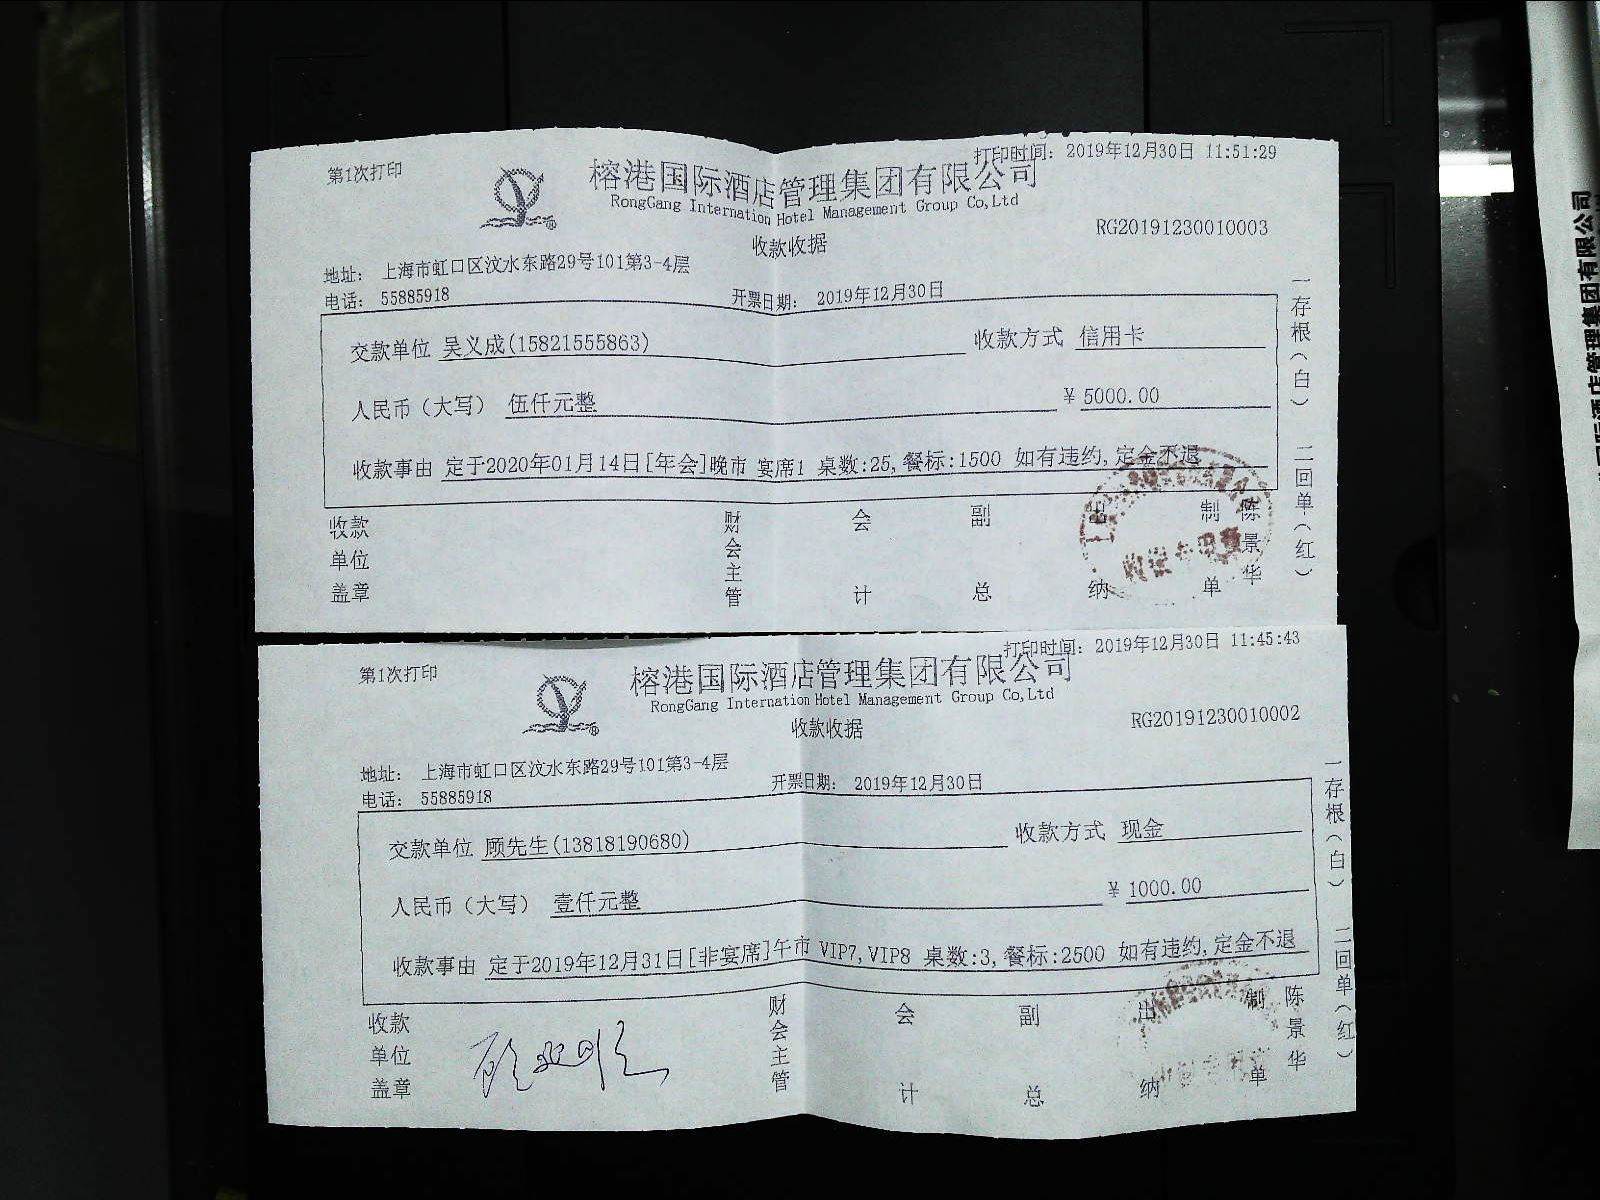 第1次打印
打印时间： 2019年12月30日 11:51:29
榕港国际酒店管理集团有限公司
RongGang Internation Hotel Management Group Co,Ltd
收款收据
RG20191230010003
地址： 上海市虹口区汶水东路29号101第3-4层
电话： 55885918
开票日期： 2019年12月30日
交款单位 吴义成(15821555863) 收款方式 信用卡
人民币（大写） 伍仟元整 ¥ 5000.00
收款事由 定于2020年01月14日[年会]晚市 宴席1 桌数:25,餐标:1500 如有违约,定金不退
收款单位盖章 财会主管 会计 副总 出纳 制单 陈景华
一存根（白） 二回单（红）
第1次打印
打印时间： 2019年12月30日 11:45:43
榕港国际酒店管理集团有限公司
RongGang Internation Hotel Management Group Co,Ltd
收款收据
RG20191230010002
地址： 上海市虹口区汶水东路29号101第3-4层
电话： 55885918
开票日期： 2019年12月30日
交款单位 顾先生(13818190680) 收款方式 现金
人民币（大写） 壹仟元整 ¥ 1000.00
收款事由 定于2019年12月31日[非宴席]午市 VIP7,VIP8 桌数:3,餐标:2500 如有违约,定金不退
收款单位盖章 财会主管 会计 副总 出纳 制单 陈景华
一存根（白） 二回单（红）
酒店管理集团有限公司